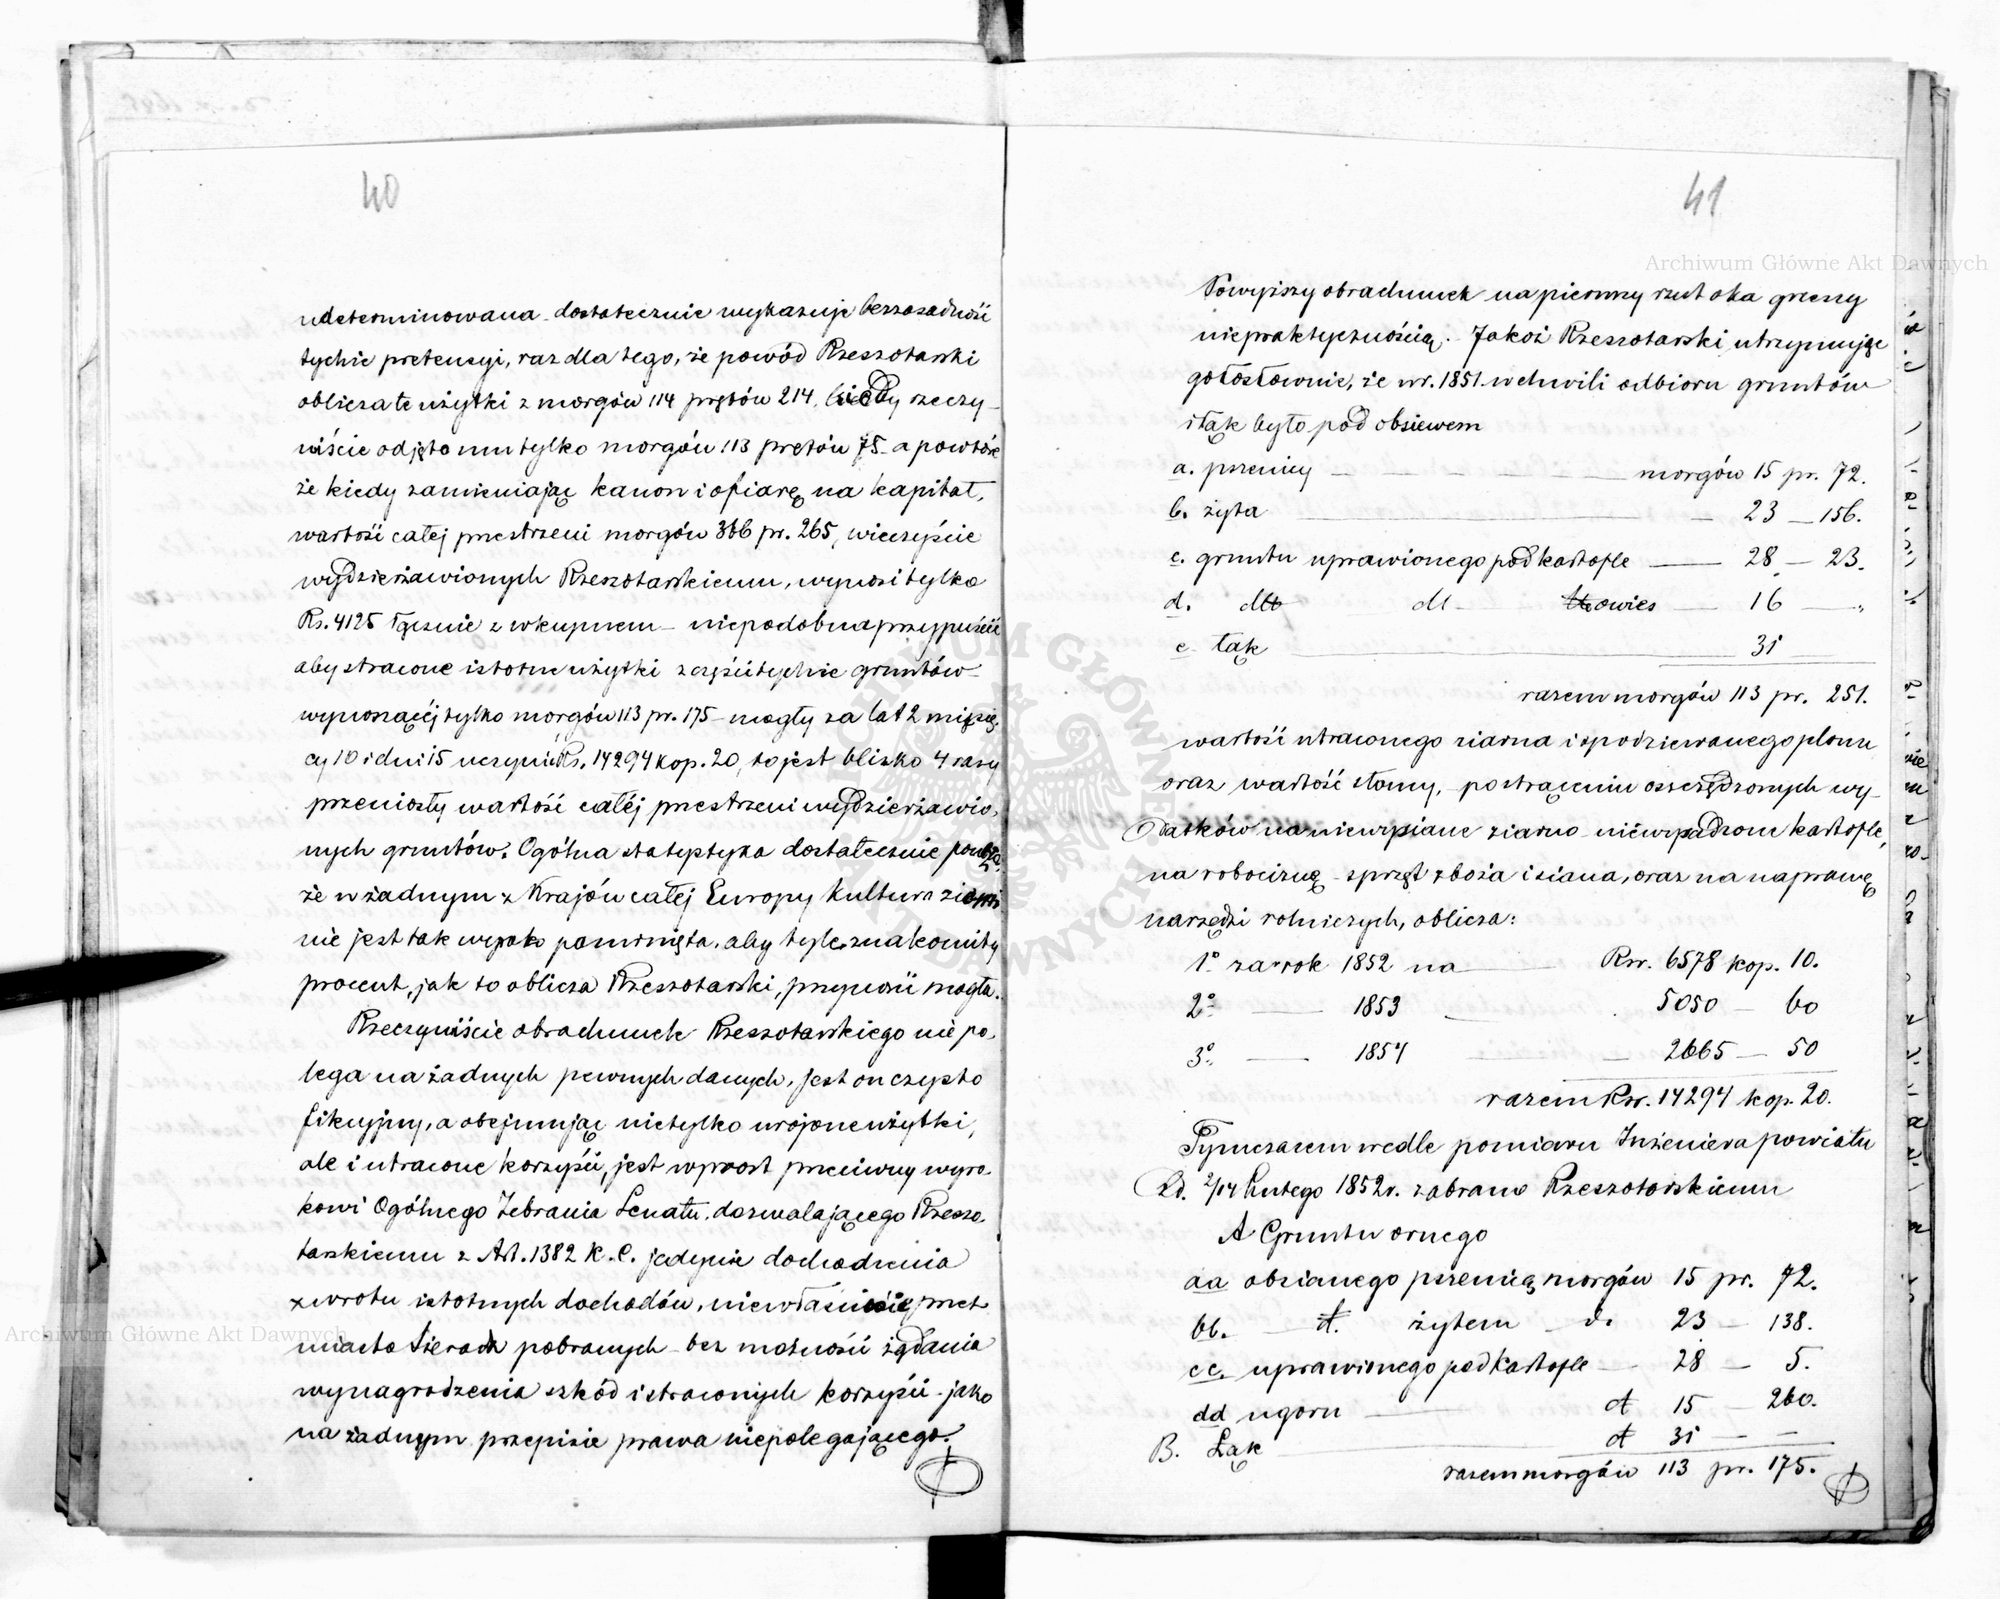 40
udeterminowana dostatecznie wykazuje bezzasadność
tychże pretensyi, raz dla tego, że powód Rzeszotarski
oblicza te użytki z morgów 114 prętów 214, kiedy rzeczy-
wiście odjęto mu tylko morgów 113 prętów 75 - a powtóre
że kiedy zamieniając kanon i ofiarę na kapitał,
wartość całej przestrzeni morgów 366 pr. 265, wieczyście
wydzierżawionych Rzeszotarskiemu, wynosi tylko
Rs. 4125 łącznie z wkupnem - niepodobna przypuścić
aby stracone istotne użytki z części tychże gruntów
wynoszącéj tylko morgów 113 pr. 175 - mogły za lat 2 miesię-
cy 10 i dni 15 uczynić Rs. 14294 kop. 20, to jest blisko 4 razy
przeniosły wartość całéj przestrzeni wydzierżawio-
nych gruntów. Ogólna statystyka dostatecznie poucza,
że w żadnym z Krajów całej Europy kultura ziemi
nie jest tak wysoko pomknięta, aby tyle znakomity
procent, jak to oblicza Rzeszotarski, przynosić mogła.
Rzeczywiście obrachunek Rzeszotarskiego nie po-
lega na żadnych pewnych danych, jest on czysto
fikcyjny, a obejmując nietylko urojone użytki,
ale i utracone korzyści, jest wprost przeciwny wyro-
kowi Ogólnego Zebrania Senatu, dozwalającego Rzeszo-
tarskiemu z Art. 1382 K. C. jedynie dochodzenia
zwrotu istotnych dochodów, niewłaściwie przez
miasto Sieradz pobranych - bez możności żądania
wynagrodzenia szkód i straconych korzyści - jako
na żadnym przepisie prawa niepolegającego.
41
Archiwum Główne Akt Dawnych
Powyższy obrachunek na pierwszy rzut oka grzeszy
niepraktycznością. Jakoż Rzeszotarski utrzymując
gołosłownie, że w r. 1851 w chwili odbioru gruntów
i łąk było pod obsiewem
a. pszenicy — morgów 15 pr. 72.
b. żyta — 23 — 156.
c. gruntu uprawionego pod kartofle — 28 — 23.
d. dto dt owies — 16 — „
e łąk — 31 —
razem morgów 113 pr. 251.
wartość utraconego ziarna i spodziewanego plonu
oraz wartość słomy, po strąceniu oszczędzonych wy-
datków na niewysiane ziarno - niewysadzone kartofle,
na robociznę - sprzęt zboża i siana, oraz na naprawę
narzędzi rolniczych, oblicza:
1° za rok 1852 na — Rsr. 6578 kop. 10.
2° — 1853 — 5050 — 60
3° — 1854 — 2665 — 50
razem Rsr. 14294 kop. 20.
Tymczasem wedle pomiaru Inżeniera powiatu
z d. 2/14 Lutego 1852 r. zabrano Rzeszotarskiemu
A Gruntu ornego
aa obsianego pszenicą morgów 15 pr. 72.
bb. — dt. żytem — d. 23 — 138.
cc. uprawionego pod kartofle — 28 — 5.
dd ugoru — dt 15 — 260.
B. Łąk dt 31 — —
razem morgów 113 pr. 175.
Archiwum Główne Akt Dawnych
ARCHIWUM GŁÓWNE AKT DAWNYCH